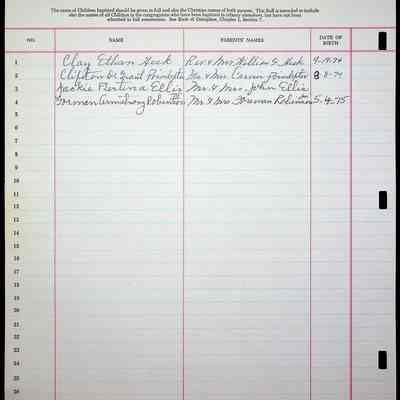 The name of Children baptized should be given in full and also the Christian names of both parents. This Roll is intended to include
also the names of all Children in the congregation who have been baptized in infancy elsewhere, but have not been
admitted to full communion. See Book of Discipline, Chapter I, Section 7.
NO. NAME PARENTS' NAMES DATE OF
BIRTH
1 Clay Ethan Heck Rev. & Mrs William G. Heck 9-19-74
2 Clifton De Grant Poindexter Mr. & Mrs. Poindexter 8-8-74
3 Jackie Ellis Mr. & Mrs. John Ellis
4 Armstrong Robinson Mr. & Mrs. Robinson 5-4-75
5
6
7
8
9
10
11
12
13
14
15
16
17
18
19
20
21
22
23
24
25
26